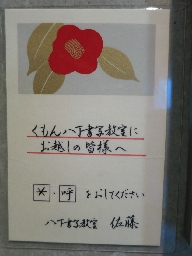 くもん八下書写教室に
お越しの皆様へ
* ・ 呼 をおしてください
八下書写教室 佐藤